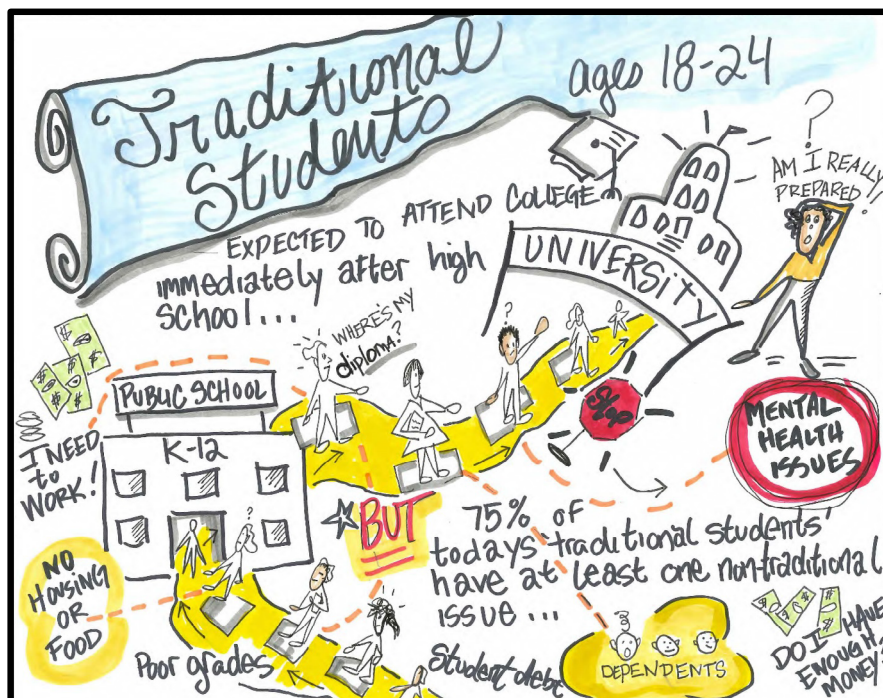 Traditional
Students
ages 18-24
?
AM I REALLY
PREPARED?!
EXPECTED TO ATTEND COLLEGE
immediately after high
school...
UNIVERSITY
WHERE'S MY
diploma?
?
$
$
$
$
PUBLIC SCHOOL
K-12
I NEED
to
WORK!
?
MENTAL
HEALTH
ISSUES
BUT
75% of
todays "traditional students"
have at least one nontraditional
issue...
NO
HOUSING
OR
FOOD
Poor grades
Student debt
DEPENDENTS
DO I HAVE
ENOUGH
MONEY?